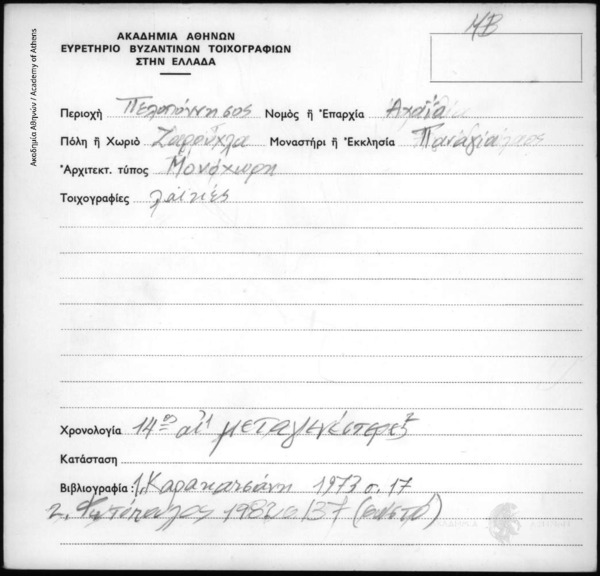 ΜΒ
ΑΚΑΔΗΜΙΑ ΑΘΗΝΩΝ
ΕΥΡΕΤΗΡΙΟ ΒΥΖΑΝΤΙΝΩΝ ΤΟΙΧΟΓΡΑΦΙΩΝ
ΣΤΗΝ ΕΛΛΑΔΑ
Ακαδημία Αθηνών / Academy of Athens
Περιοχή Πελοπόννησος Νομός ἤ Ἐπαρχία Αχαΐα
Πόλη ἤ Χωριό Ζαρούχλα Μοναστήρι ἤ Ἐκκλησία Παναγία
Ἀρχιτεκτ. τύπος Μονόχωρη
Τοιχογραφίες λαϊκές
Χρονολογία 14ος αἰ
Κατάσταση
Βιβλιογραφία: 1. Καρακατσάνη 1973 σ. 17
2. Φωτόπουλος 1982 σ 137